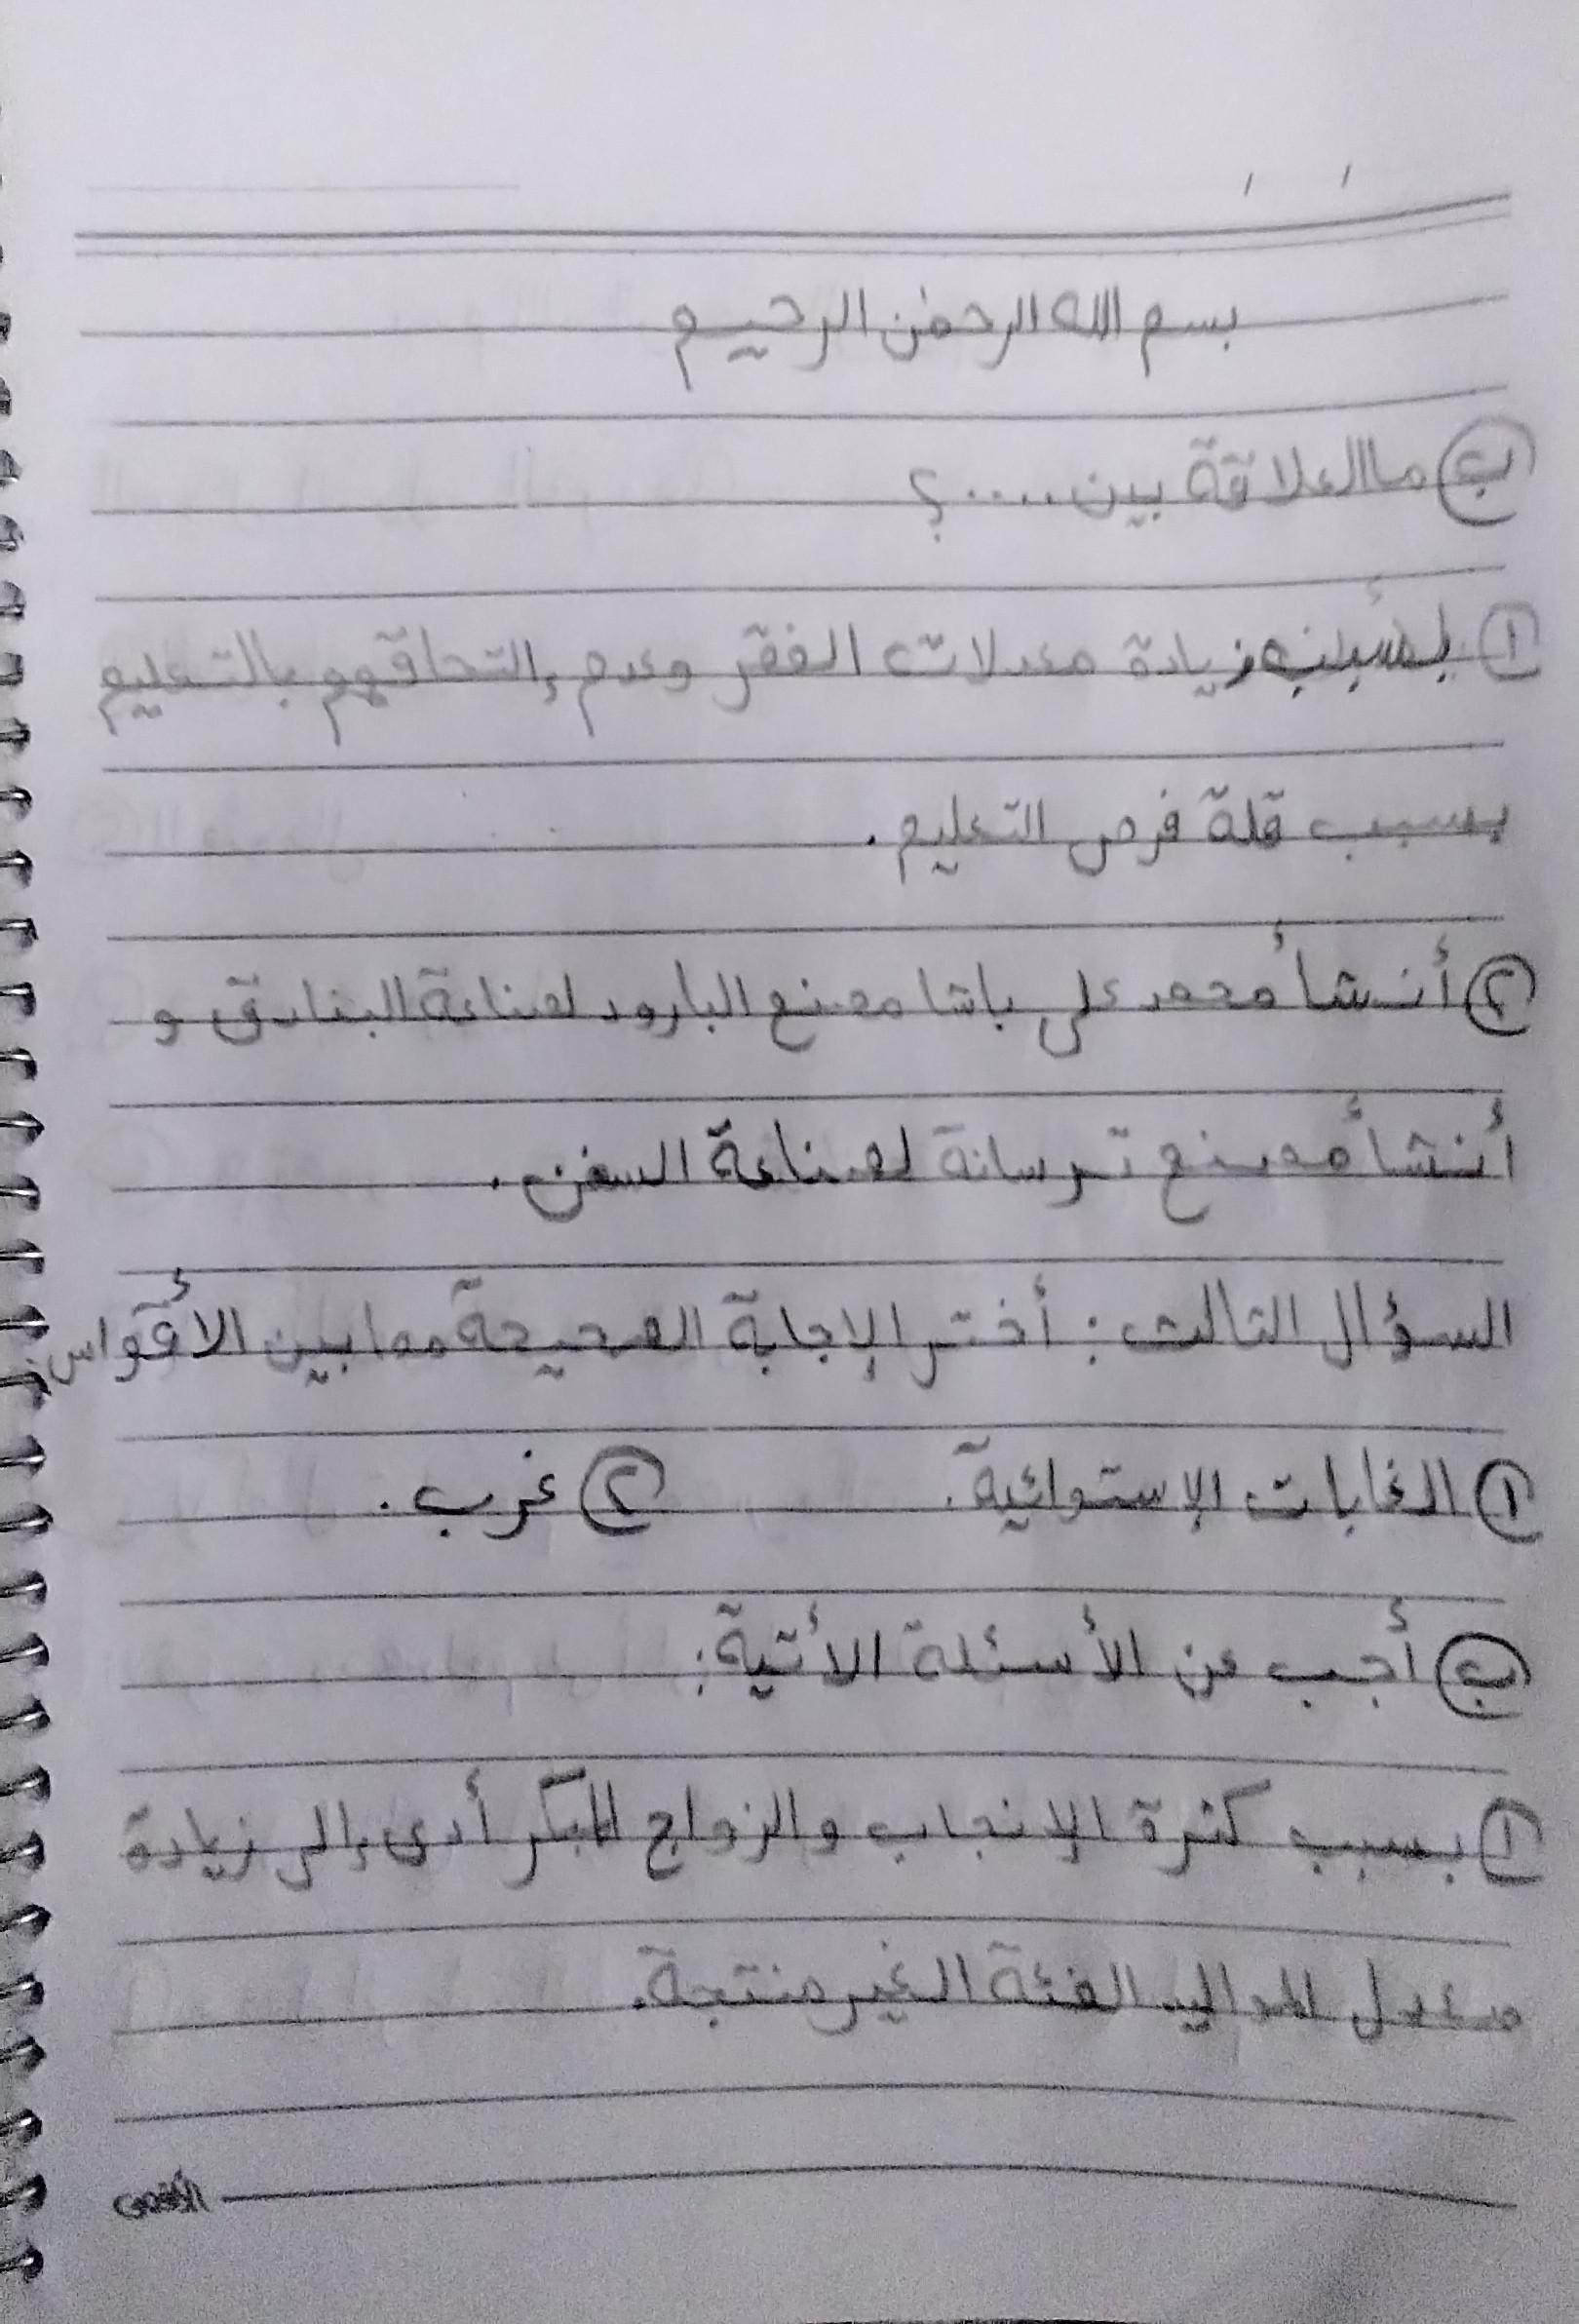 بسم الله الرحمن الرحيم
ب ما العلاقة بين ....؟
١ زيادة معدلات الفقر وعدم إلتحاقهم بالتعليم
بسبب قلة فرص التعليم .
٢ أنشأ محمد على باشا مصنع البارود لصناعة البنادق و
أنشأ مصنع ترسانة لصناعة السفن .
السؤال الثالث : أختر الإجابة الصحيحة مما بين الأقواس :
١ الغابات الإستوائية . ٢ غرب .
ب أجب عن الأسئلة الأتية :
١ بسبب كثرة الإنجاب والزواج المبكر أدى إلى زيادة
معدل المواليد الفئة الغير منتجة .